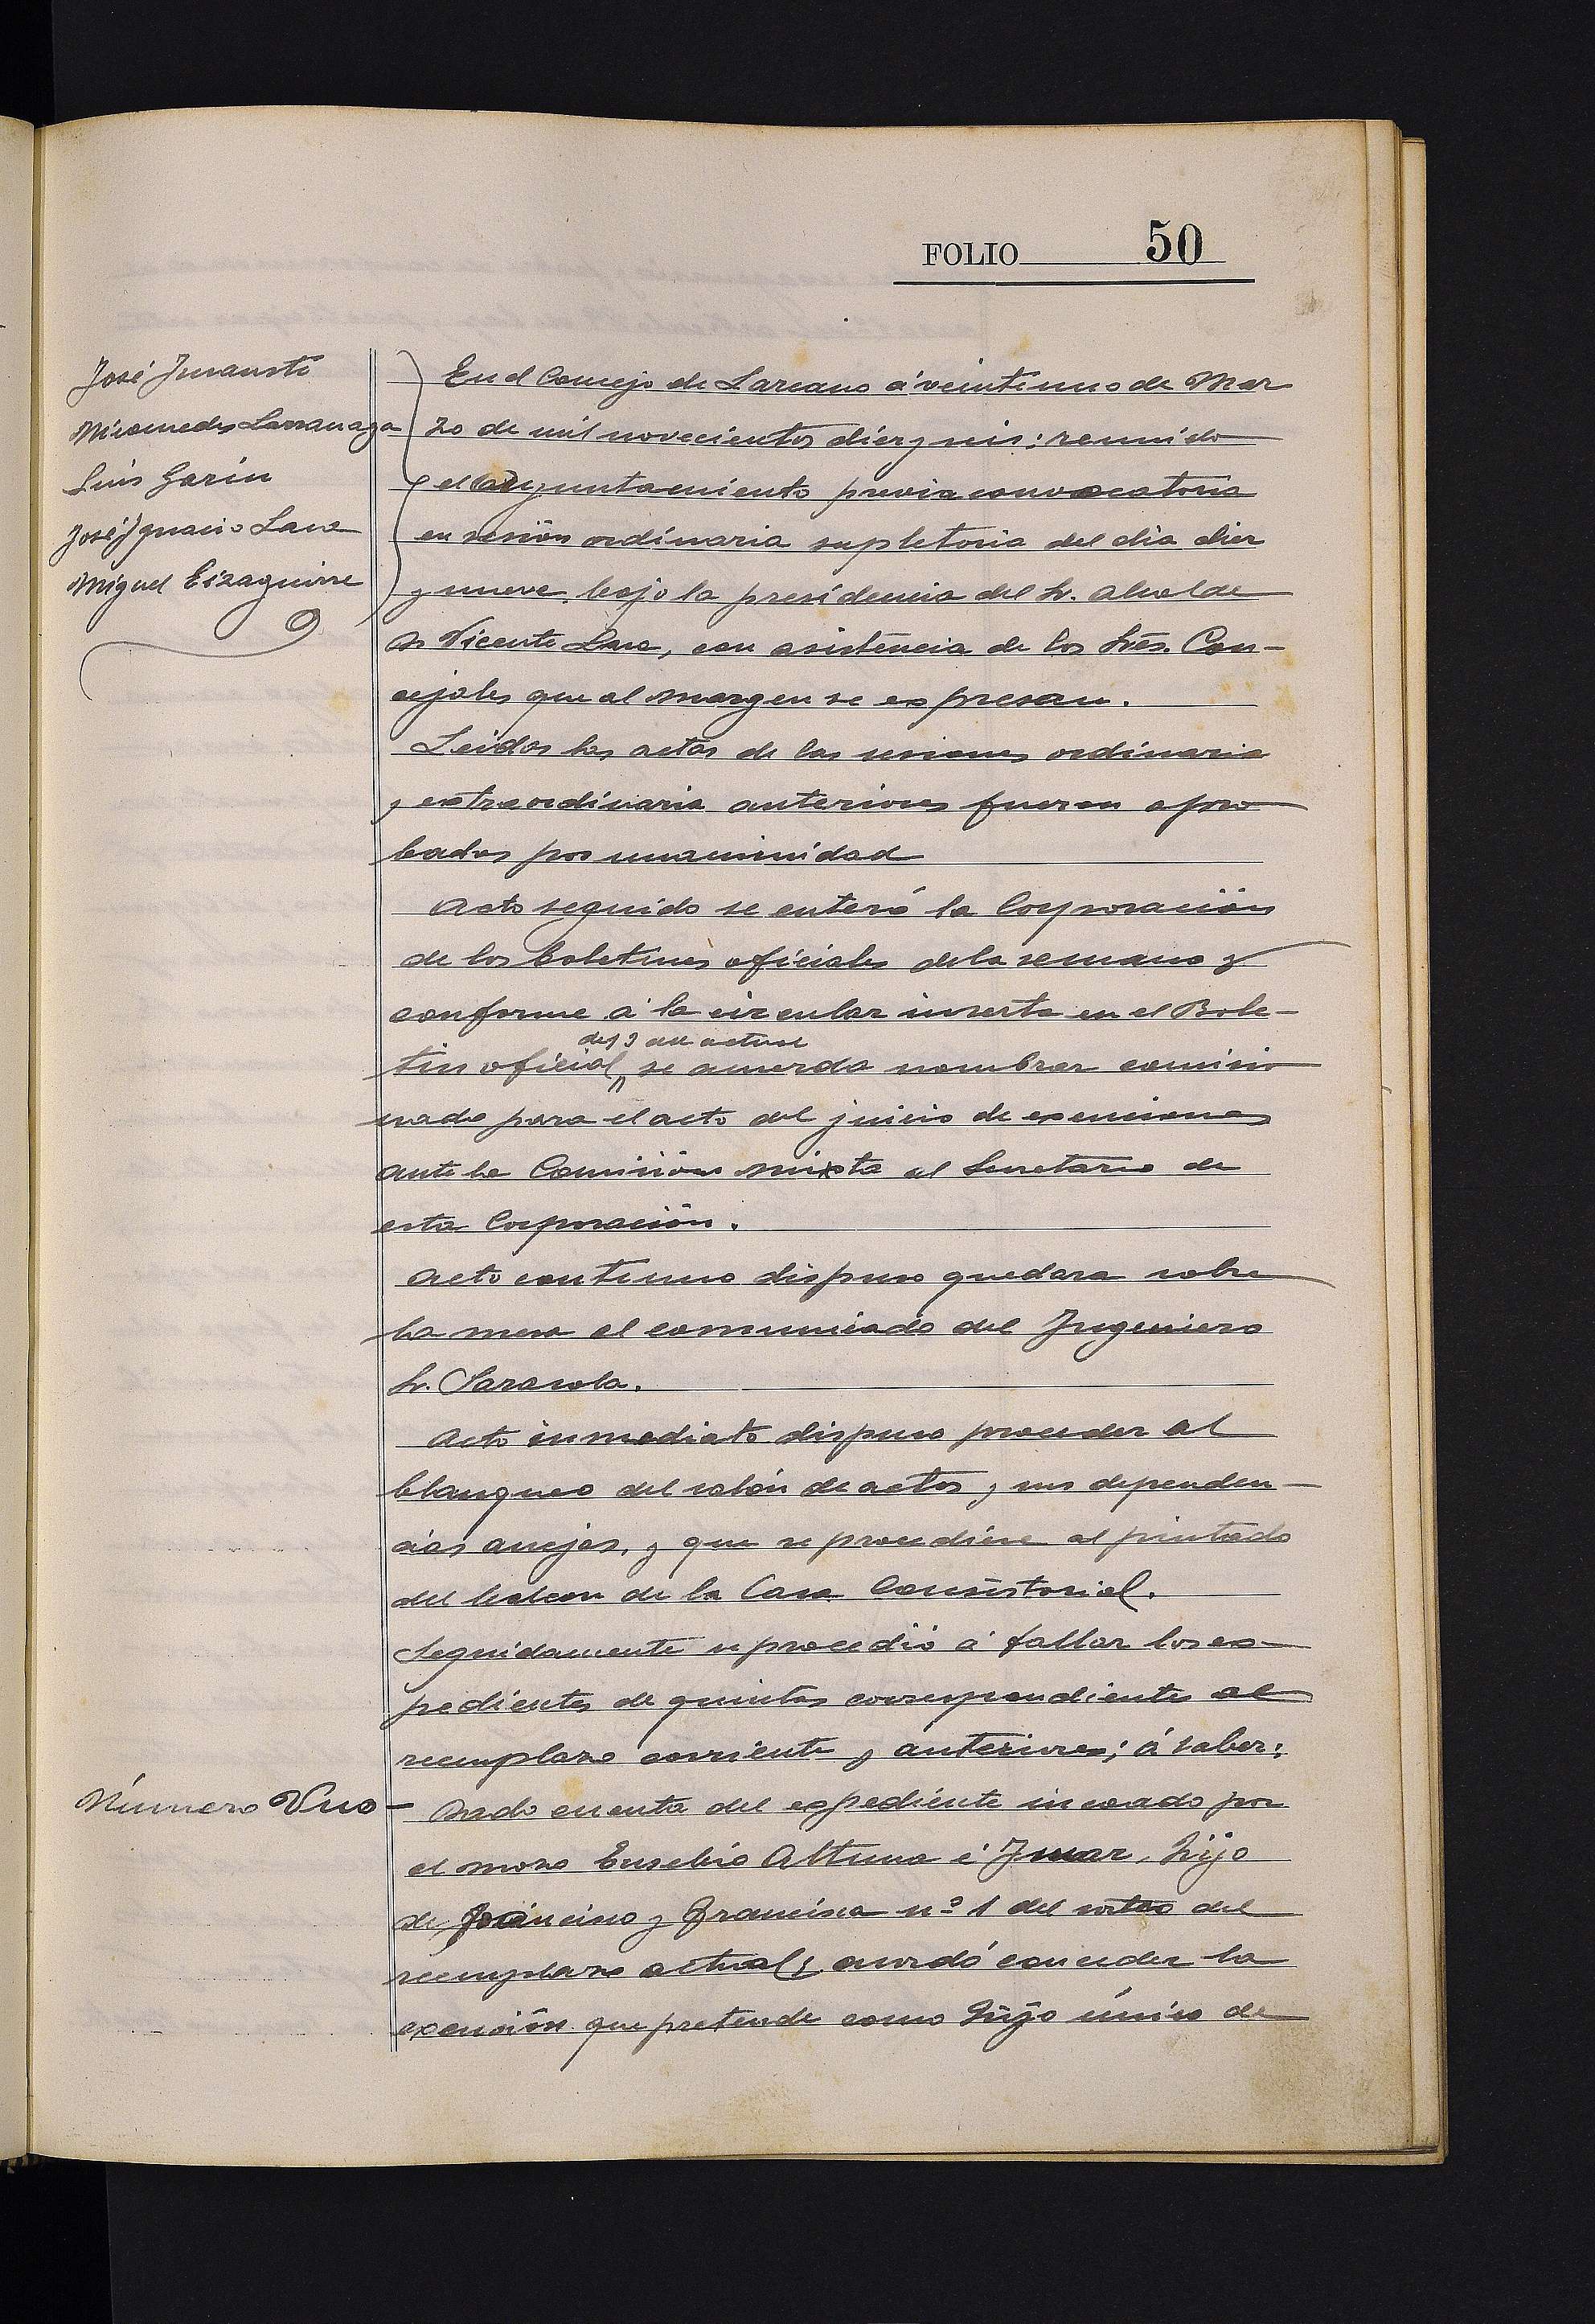 FOLIO 50
José Jurausti
Nicomedes Larrañaga
Luis Garin
José Ignacio Lasa
Miguel Eizaguirre
En el Concejo de Lazcano á veintiuno de Mar
zo de mil novecientos diez y seis; reunido
el Ayuntamiento previa convocatoria
en sesión ordinaria supletoria del dia diez
y nueve, bajo la presidencia del Sr. Alcalde
Dn Vicente Lasa, con asistencia de los Sres. Con-
cejales que al margen se expresan.
Leidas las actas de las sesiones ordinaria
y extraordinaria anteriores fueron apro
badas por unanimidad
Acto seguido se enteró la Corporación
de los Boletines oficiales de la semana y
conforme á la circular inserta en el Bole-
del 3 del actual
tin oficial, se acuerda nombrar comisio
nado para el acto del juicio de exenciones
ante la Comisión mixta al Secretario de
esta Corporación.
Acto continuo dispuso quedara sobre
la mesa el comunicado del Ingeniero
Sr. Sarasola.
Acto inmediato dispuso proceder al
blanqueo del salón de actos y sus dependen-
cias anejas, y que se procediese al pintado
del balcon de la Casa Consistorial.
Seguidamente se procedió á fallar los ex-
pedientes de quintas correspondientes al
reemplazo corriente y anteriores; á saber:
Número Uno - Dado cuenta del expediente incoado por
el mozo Eusebio Altuna é , hijo
de Francisco y Francisca nº 1 del sorteo del
reemplazo actual; acordó conceder la
exención que pretende como hijo único de